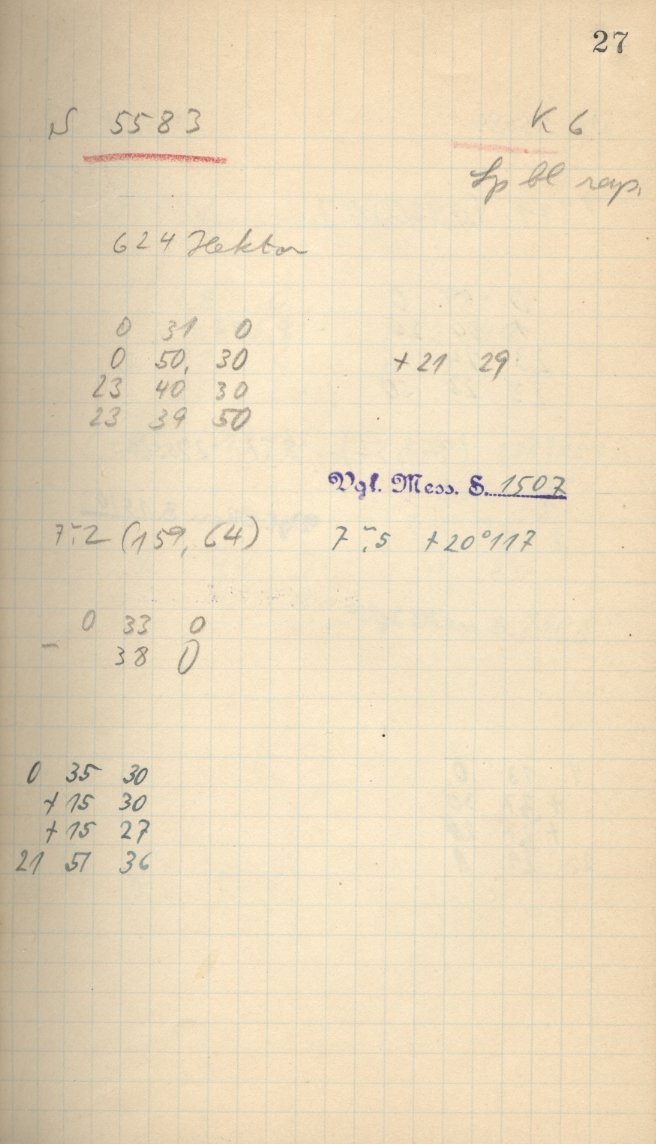 27
N 5583 K 6
Sp bl rap.
624 Hektor
0 31 0
0 50, 30 +21 29
23 40 30
23 39 50
Vgl. Mess. S. 1507
7.2 (159, 64) 7.5 +20°117
0 33 0
- 38 0
0 35 30
+15 30
+15 27
21 51 36